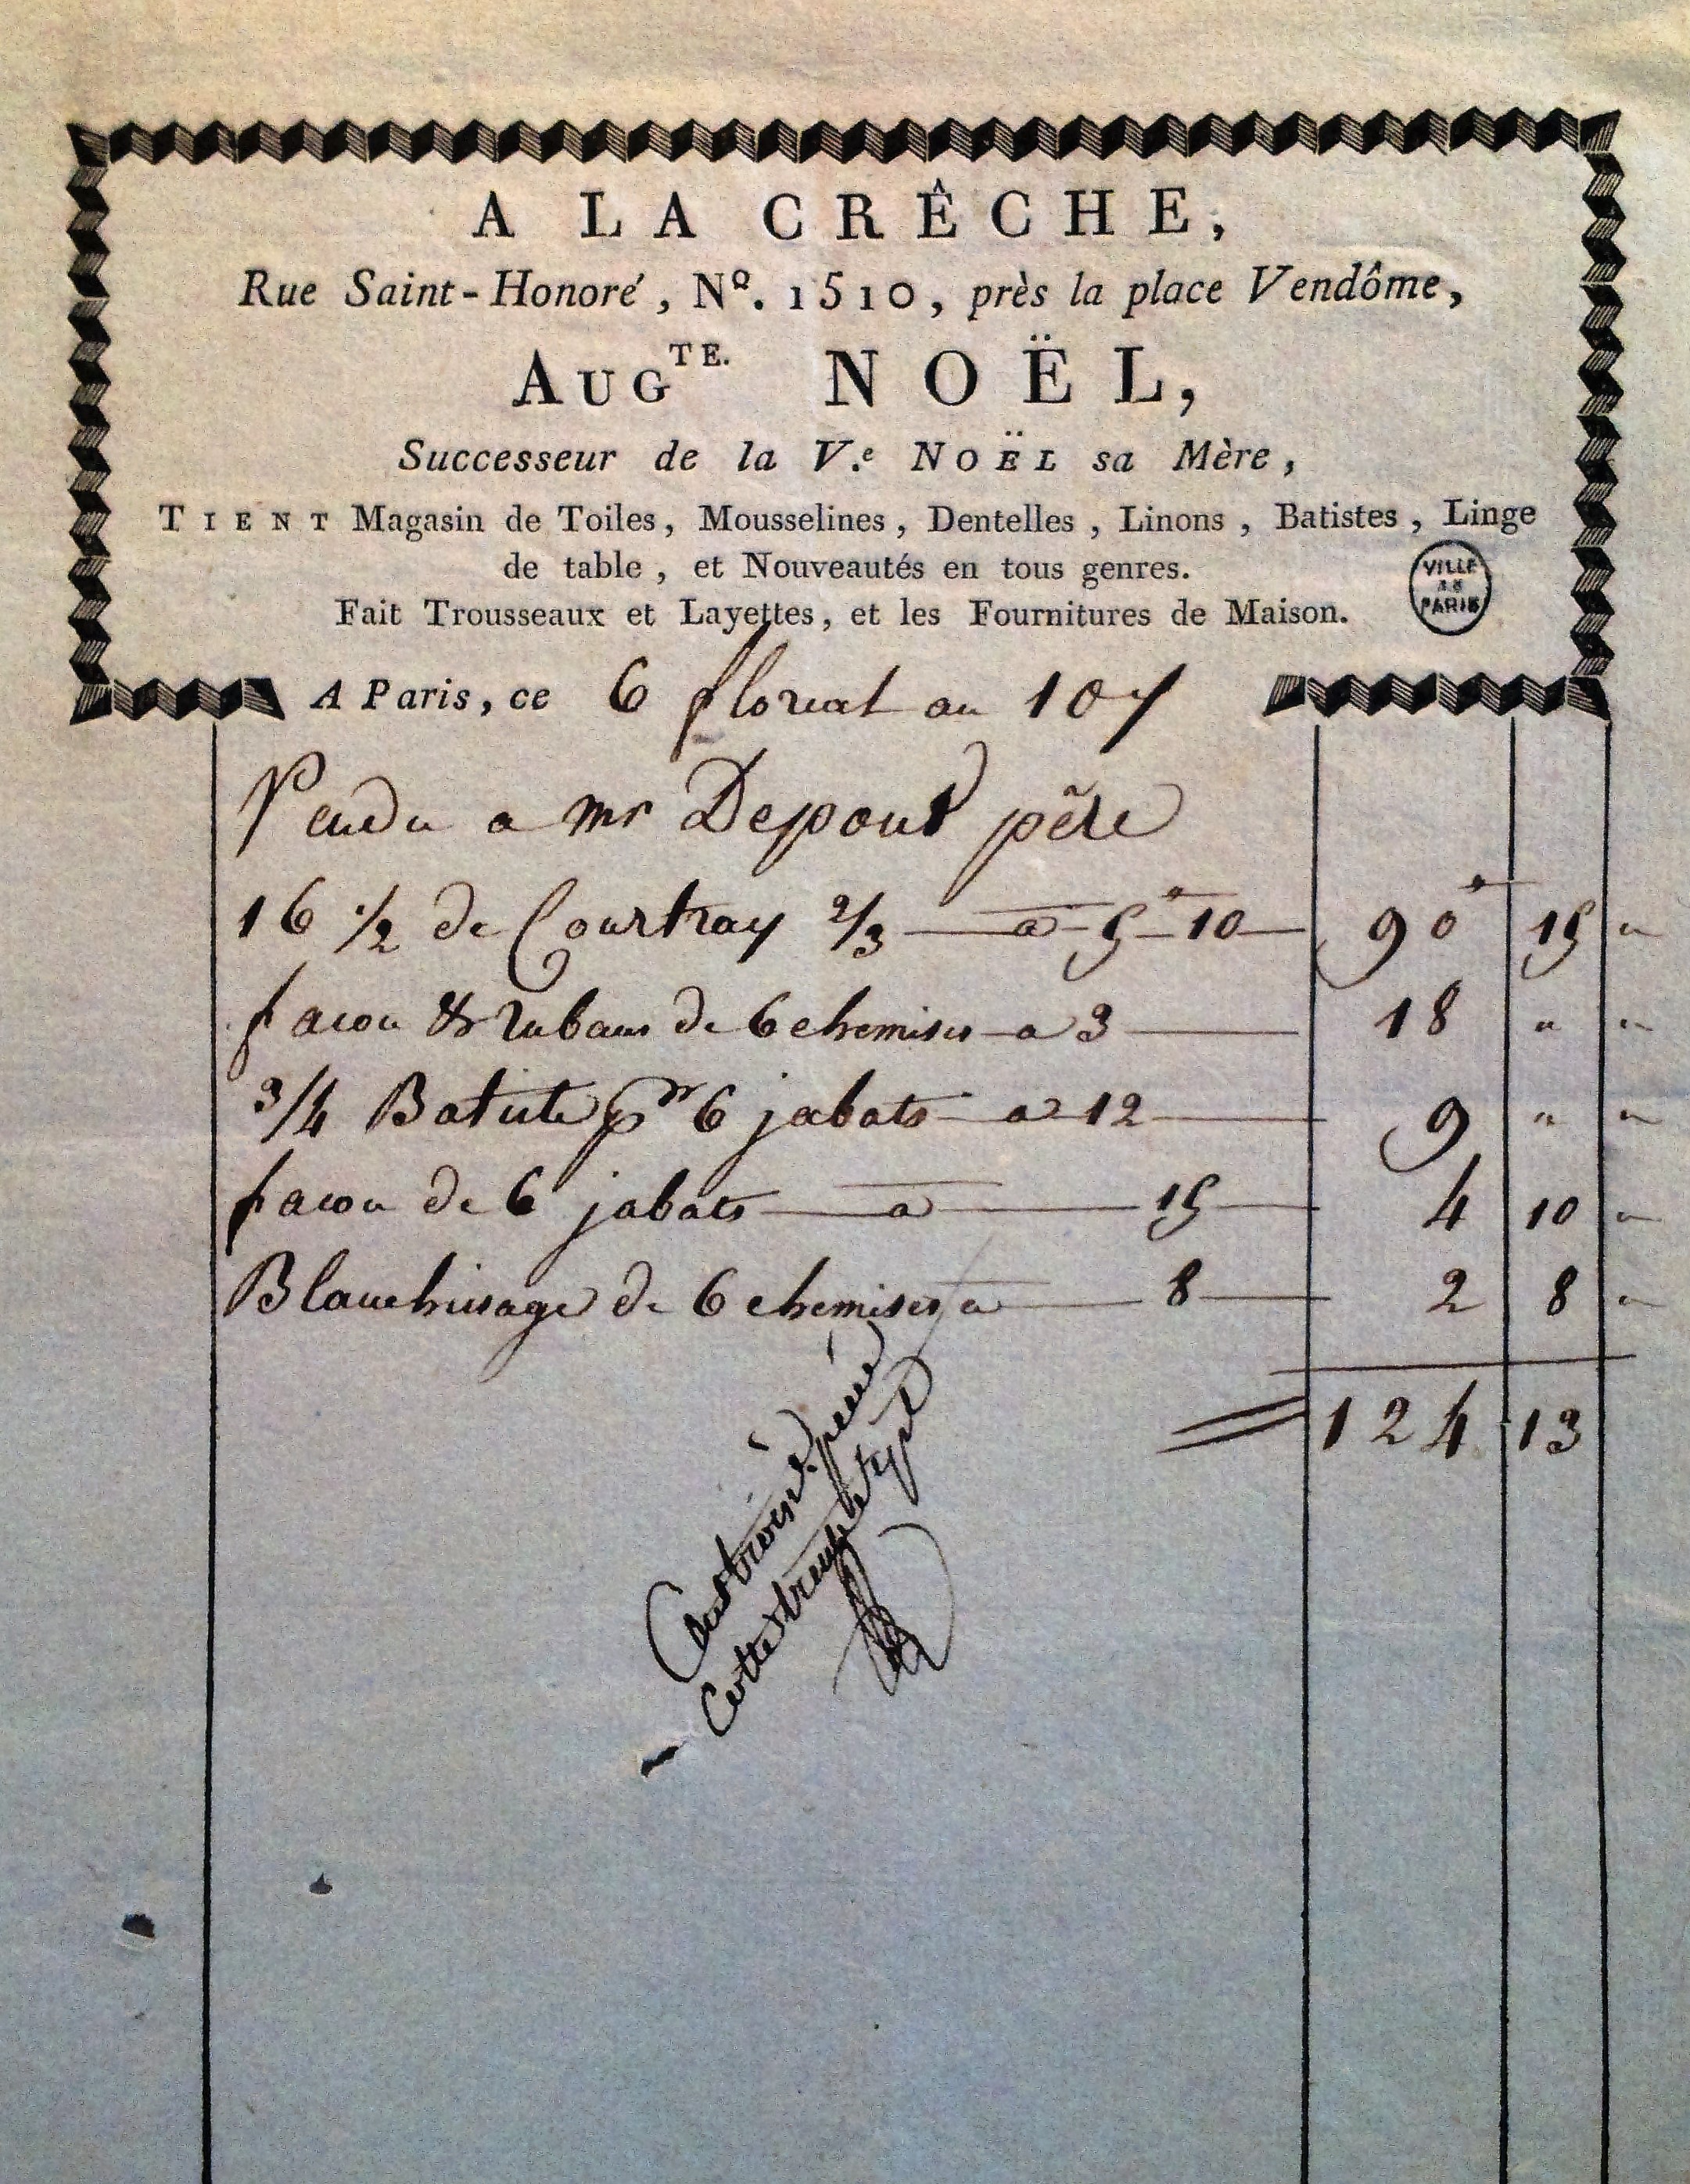 A LA CRÊCHE,
Rue Saint-Honoré, Nº. 1510, près la place Vendôme,
AUGTE. NOËL,
Successeur de la V.e NOËL sa Mère,
TIENT Magasin de Toiles, Mousselines, Dentelles, Linons, Batistes, Linge
de table, et Nouveautés en tous genres.
VILLE DE PARIS
Fait Trousseaux et Layettes, et les Fournitures de Maison.
A Paris, ce 6 floreal an 10
Vendu a mr Depont père
16 1/2 de Courtray 2/3 a 5 10 90 15 "
facon & rubans de 6 chemises a 3 18 " "
3/4 Batiste pr 6 jabots a 12 9 " "
facon de 6 jabots a 15 4 10 "
Blanchissage de 6 chemises a 8 2 8 "
124 13